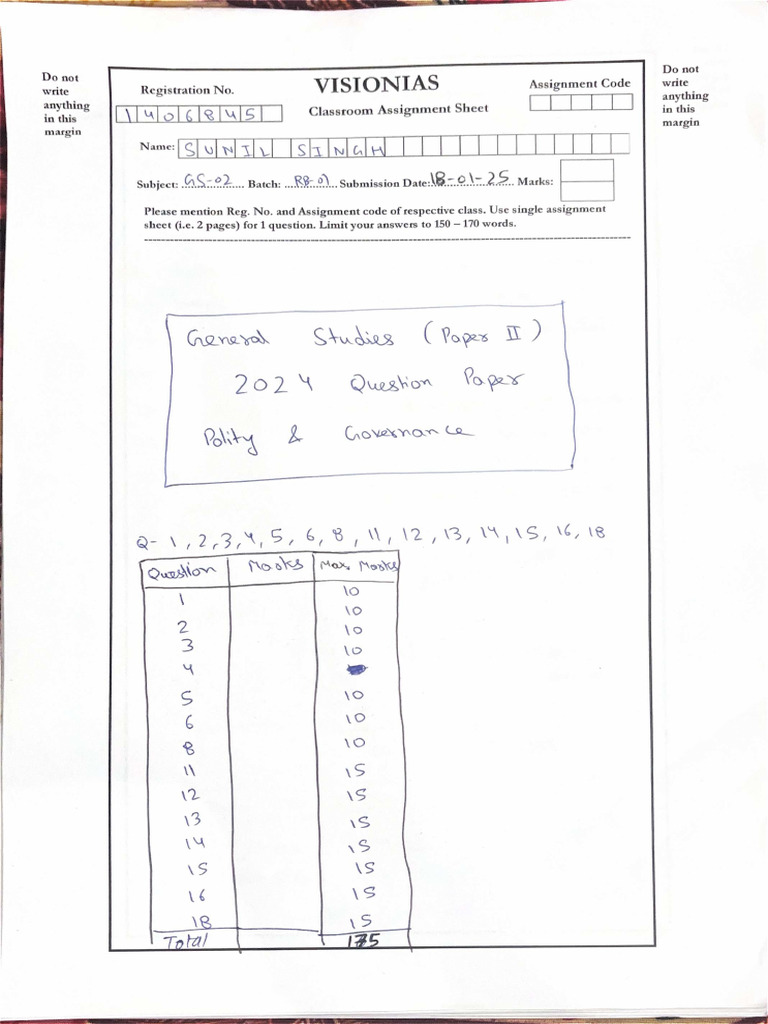 Do not
write
anything
in this
margin
VISIONIAS
Registration No.
Classroom Assignment Sheet
Assignment Code
Do not
write
anything
in this
margin
1406845
Name: SUNIL SINGH
Subject: GS-02 Batch: RB-07 Submission Date: 18-01-25 Marks:
Please mention Reg. No. and Assignment code of respective class. Use single assignment
sheet (i.e. 2 pages) for 1 question. Limit your answers to 150 – 170 words.
General Studies (Paper II)
2024 Question Paper
Polity & Governance
Q- 1, 2, 3, 4, 5, 6, 8, 11, 12, 13, 14, 15, 16, 18
Question Marks Max Marks
1 10
10
2 10
3 10
4
5 10
6 10
8 10
11 15
12 15
13 15
14 15
15 15
16 15
18 15
Total 175